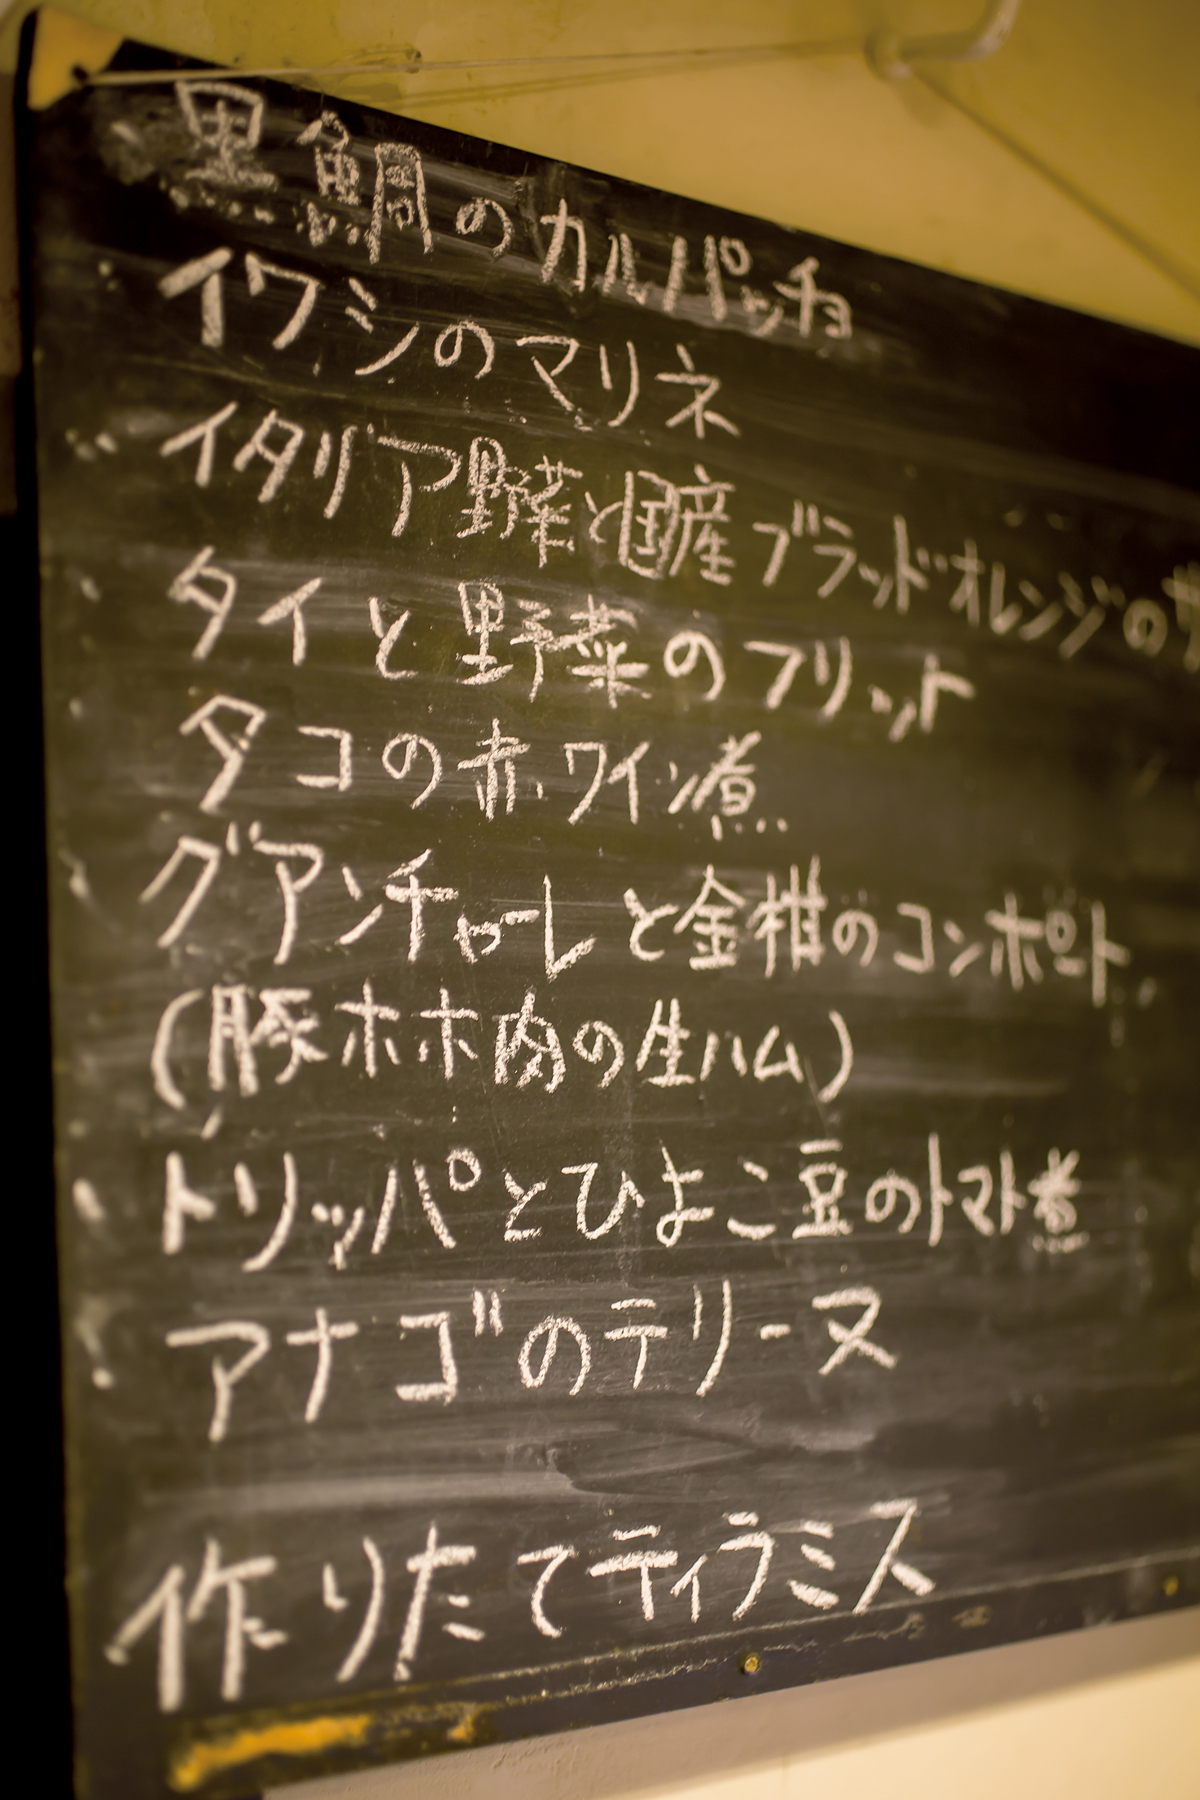 黒鯛のカルパッチョ
イワシのマリネ
イタリア野菜と国産ブラッドオレンジの
タイと野菜のフリット
タコの赤ワイン煮
グアンチャーレと金柑のコンポート
(豚ホホ肉の生ハム)
トリッパとひよこ豆のトマト煮
アナゴのテリーヌ
作りたてティラミス